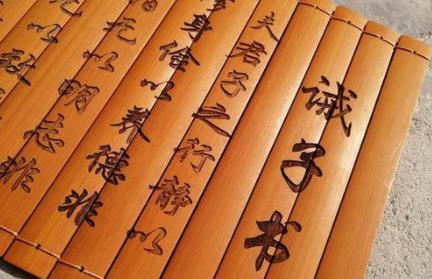 诫子书
夫君子之行静以
修身俭以养德非
无以明志非